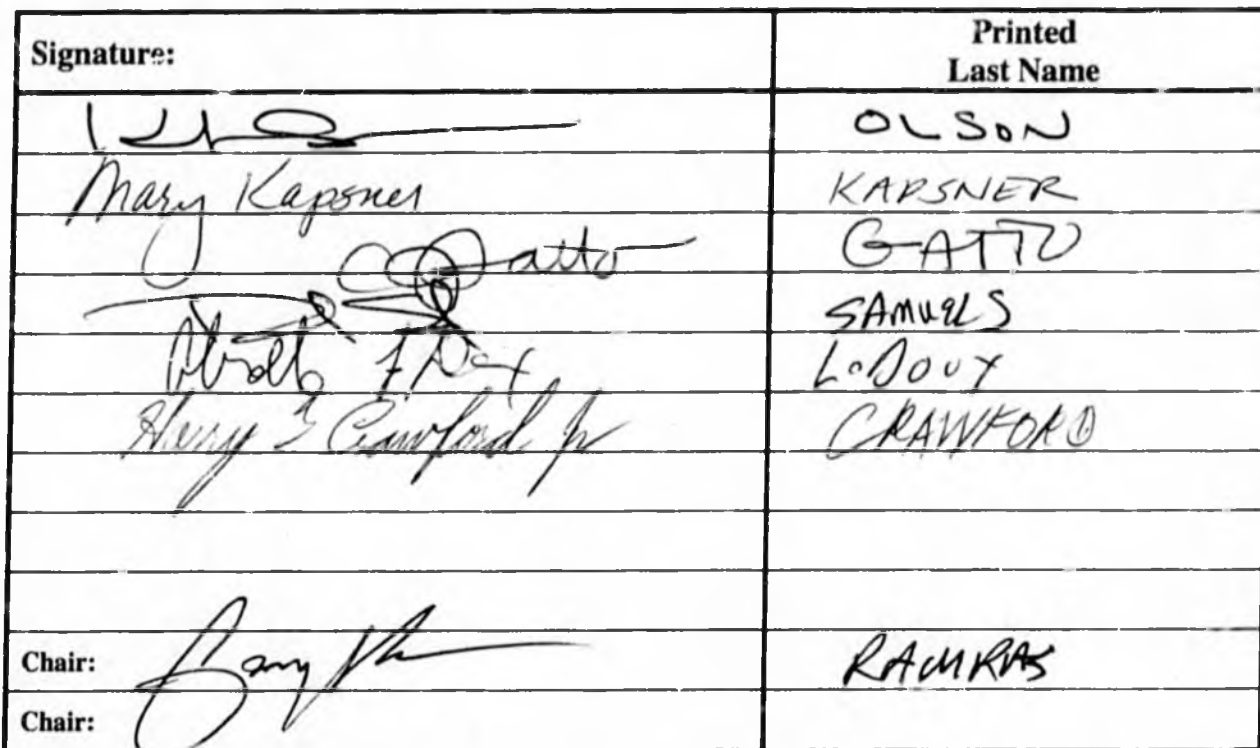 Signature: Printed
Last Name
OLSON
Mary Kapsner KAPSNER
Gatto GATTO
SAMUELS
LeDoux
Harry E Crawford Jr CRAWFORD
Chair: RAMRAS
Chair: